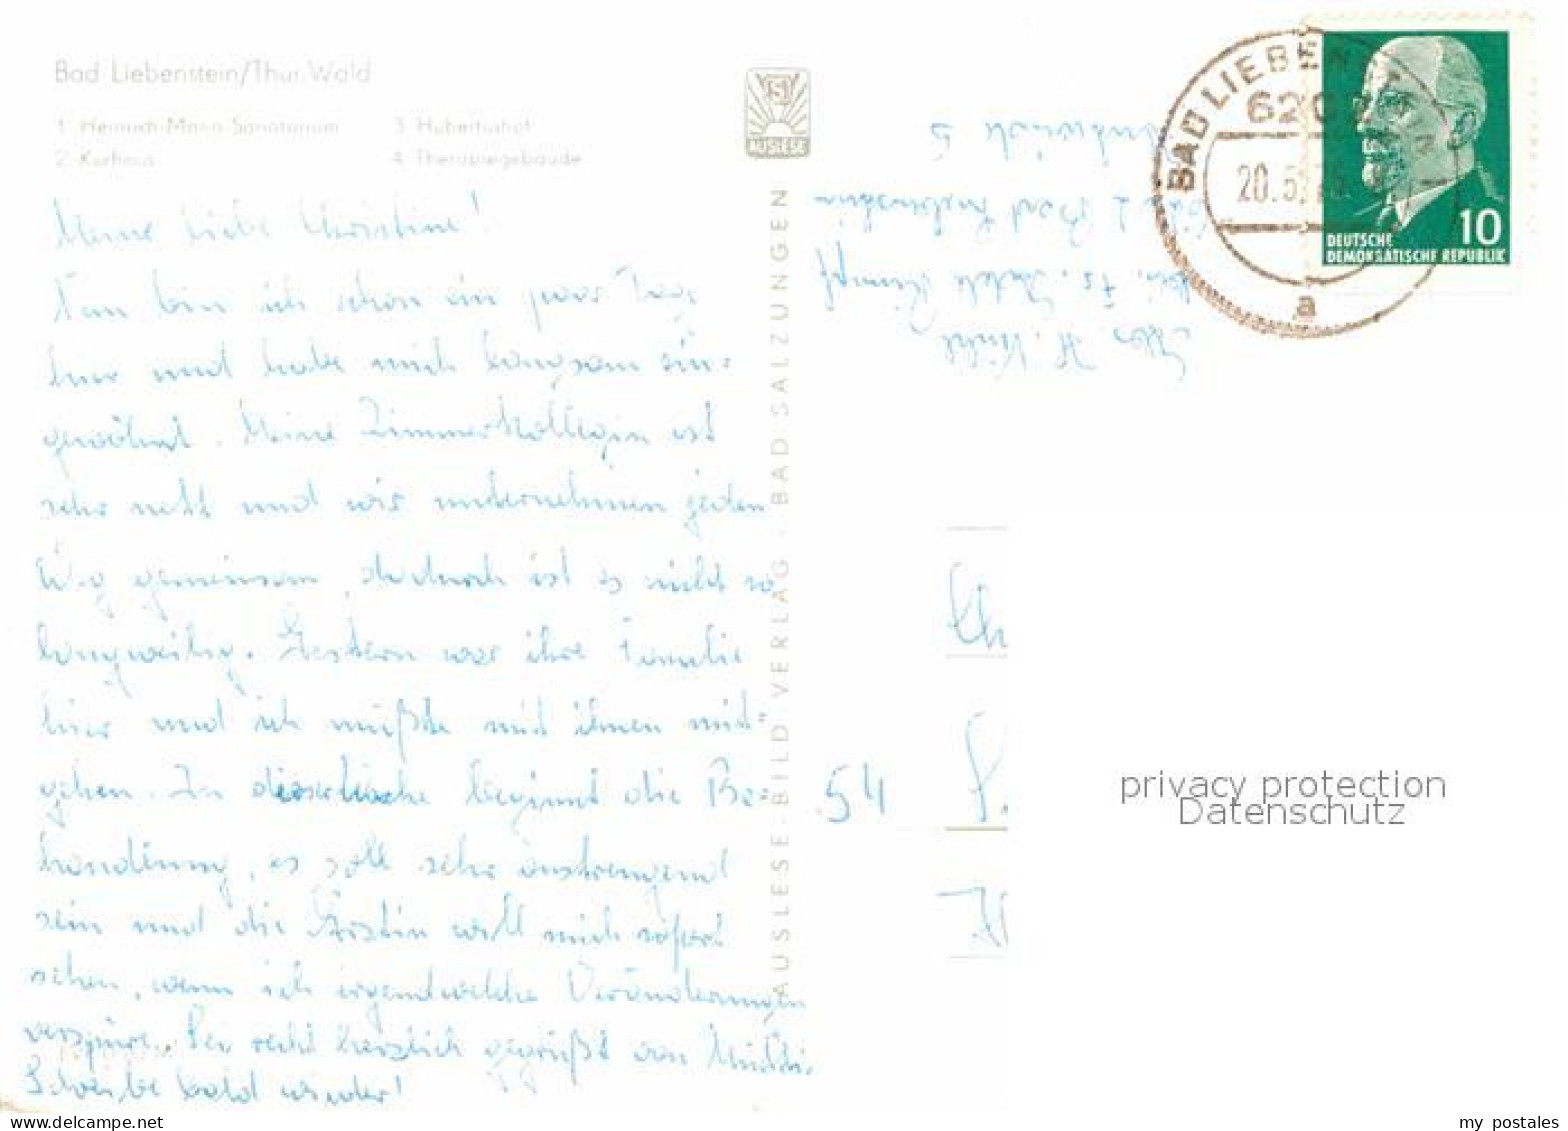 Bad Liebenstein/Thür. Wald
1 Heinrich-Mann-Sanatorium
2 Kurhaus
3 Hubertushof
4 Therapiegebäude
Meine liebe Christine!
Nun bin ich schon ein paar Tage
hier und habe mich langsam ein=
gewöhnt. Meine Zimmerkollegin ist
sehr nett und wir unternehmen jeden
Weg gemeinsam, dadurch ist es nicht so
langweilig. Gestern war ihre Familie
hier und ich mußte mit ihnen mit=
gehen. In dieser Woche beginnt die Be=
handlung, es soll sehr anstrengend
sein und die Ärztin will mich sofort
sehen, wenn ich irgendwelche Veränderungen
verspüre. Sei recht herzlich gegrüßt von Mutti.
Schreibe bald wieder!
AUSLESE-BILD-VERLAG · BAD SALZUNGEN
SI
AUSLESE
BAD LIEBEN
620
20.5.
a
10
DEUTSCHE
DEMOKRATISCHE REPUBLIK
Abs. H.
Bad Liebenstein
5
54
privacy protection
Datenschutz
my postales